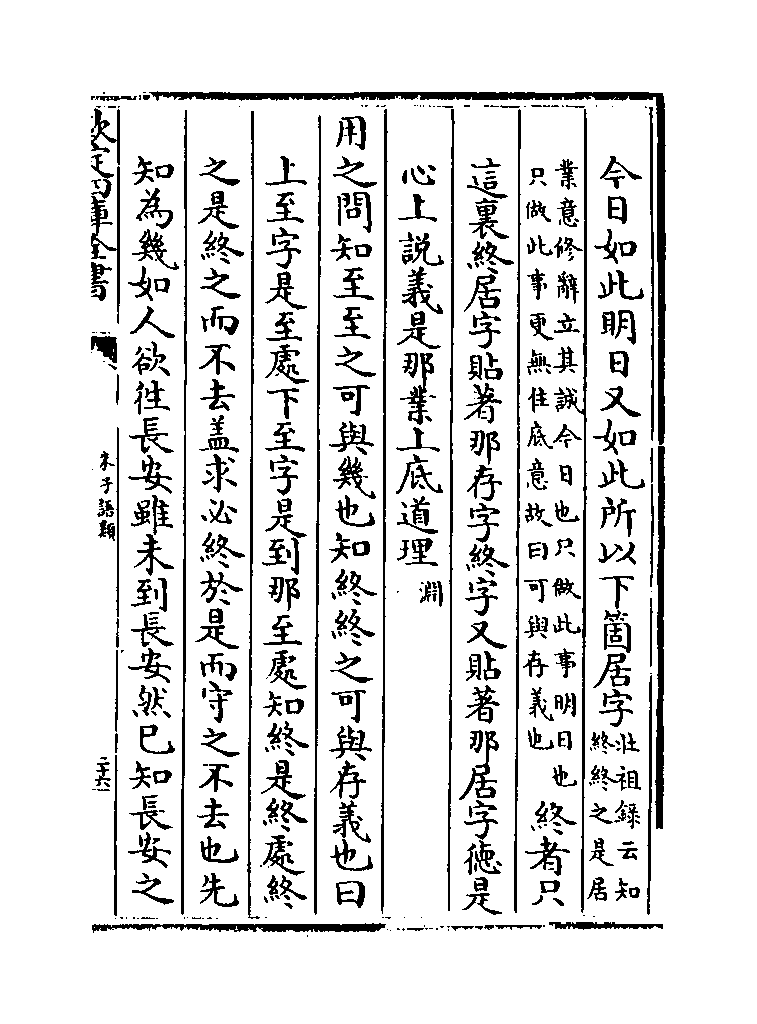 今日如此明日又如此所以下箇居字壯祖録云知
終終之是居
業意修辭立其誠今日也只做此事明日也
只做此事更無住底意故曰可與存義也終者只
這裏終居字貼著那存字終字又貼著那居字徳是
心上説義是那業上底道理淵
用之問知至至之可與幾也知終終之可與存義也曰
上至字是至處下至字是到那至處知終是終處終
之是終之而不去盖求必終於是而守之不去也先
知為幾如人欲徃長安雖未到長安然已知長安之
欽定四庫全書
朱子語類
二十六